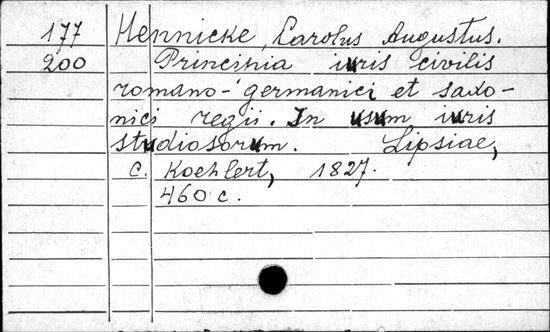 177 Hennicke, Carolus Augustus.
200 Principia iuris civilis
romano-germanici et saxo-
nici regii. In usum iuris
studiosorum. Lipsiae,
c. Koehlert, 1827.
460 c.